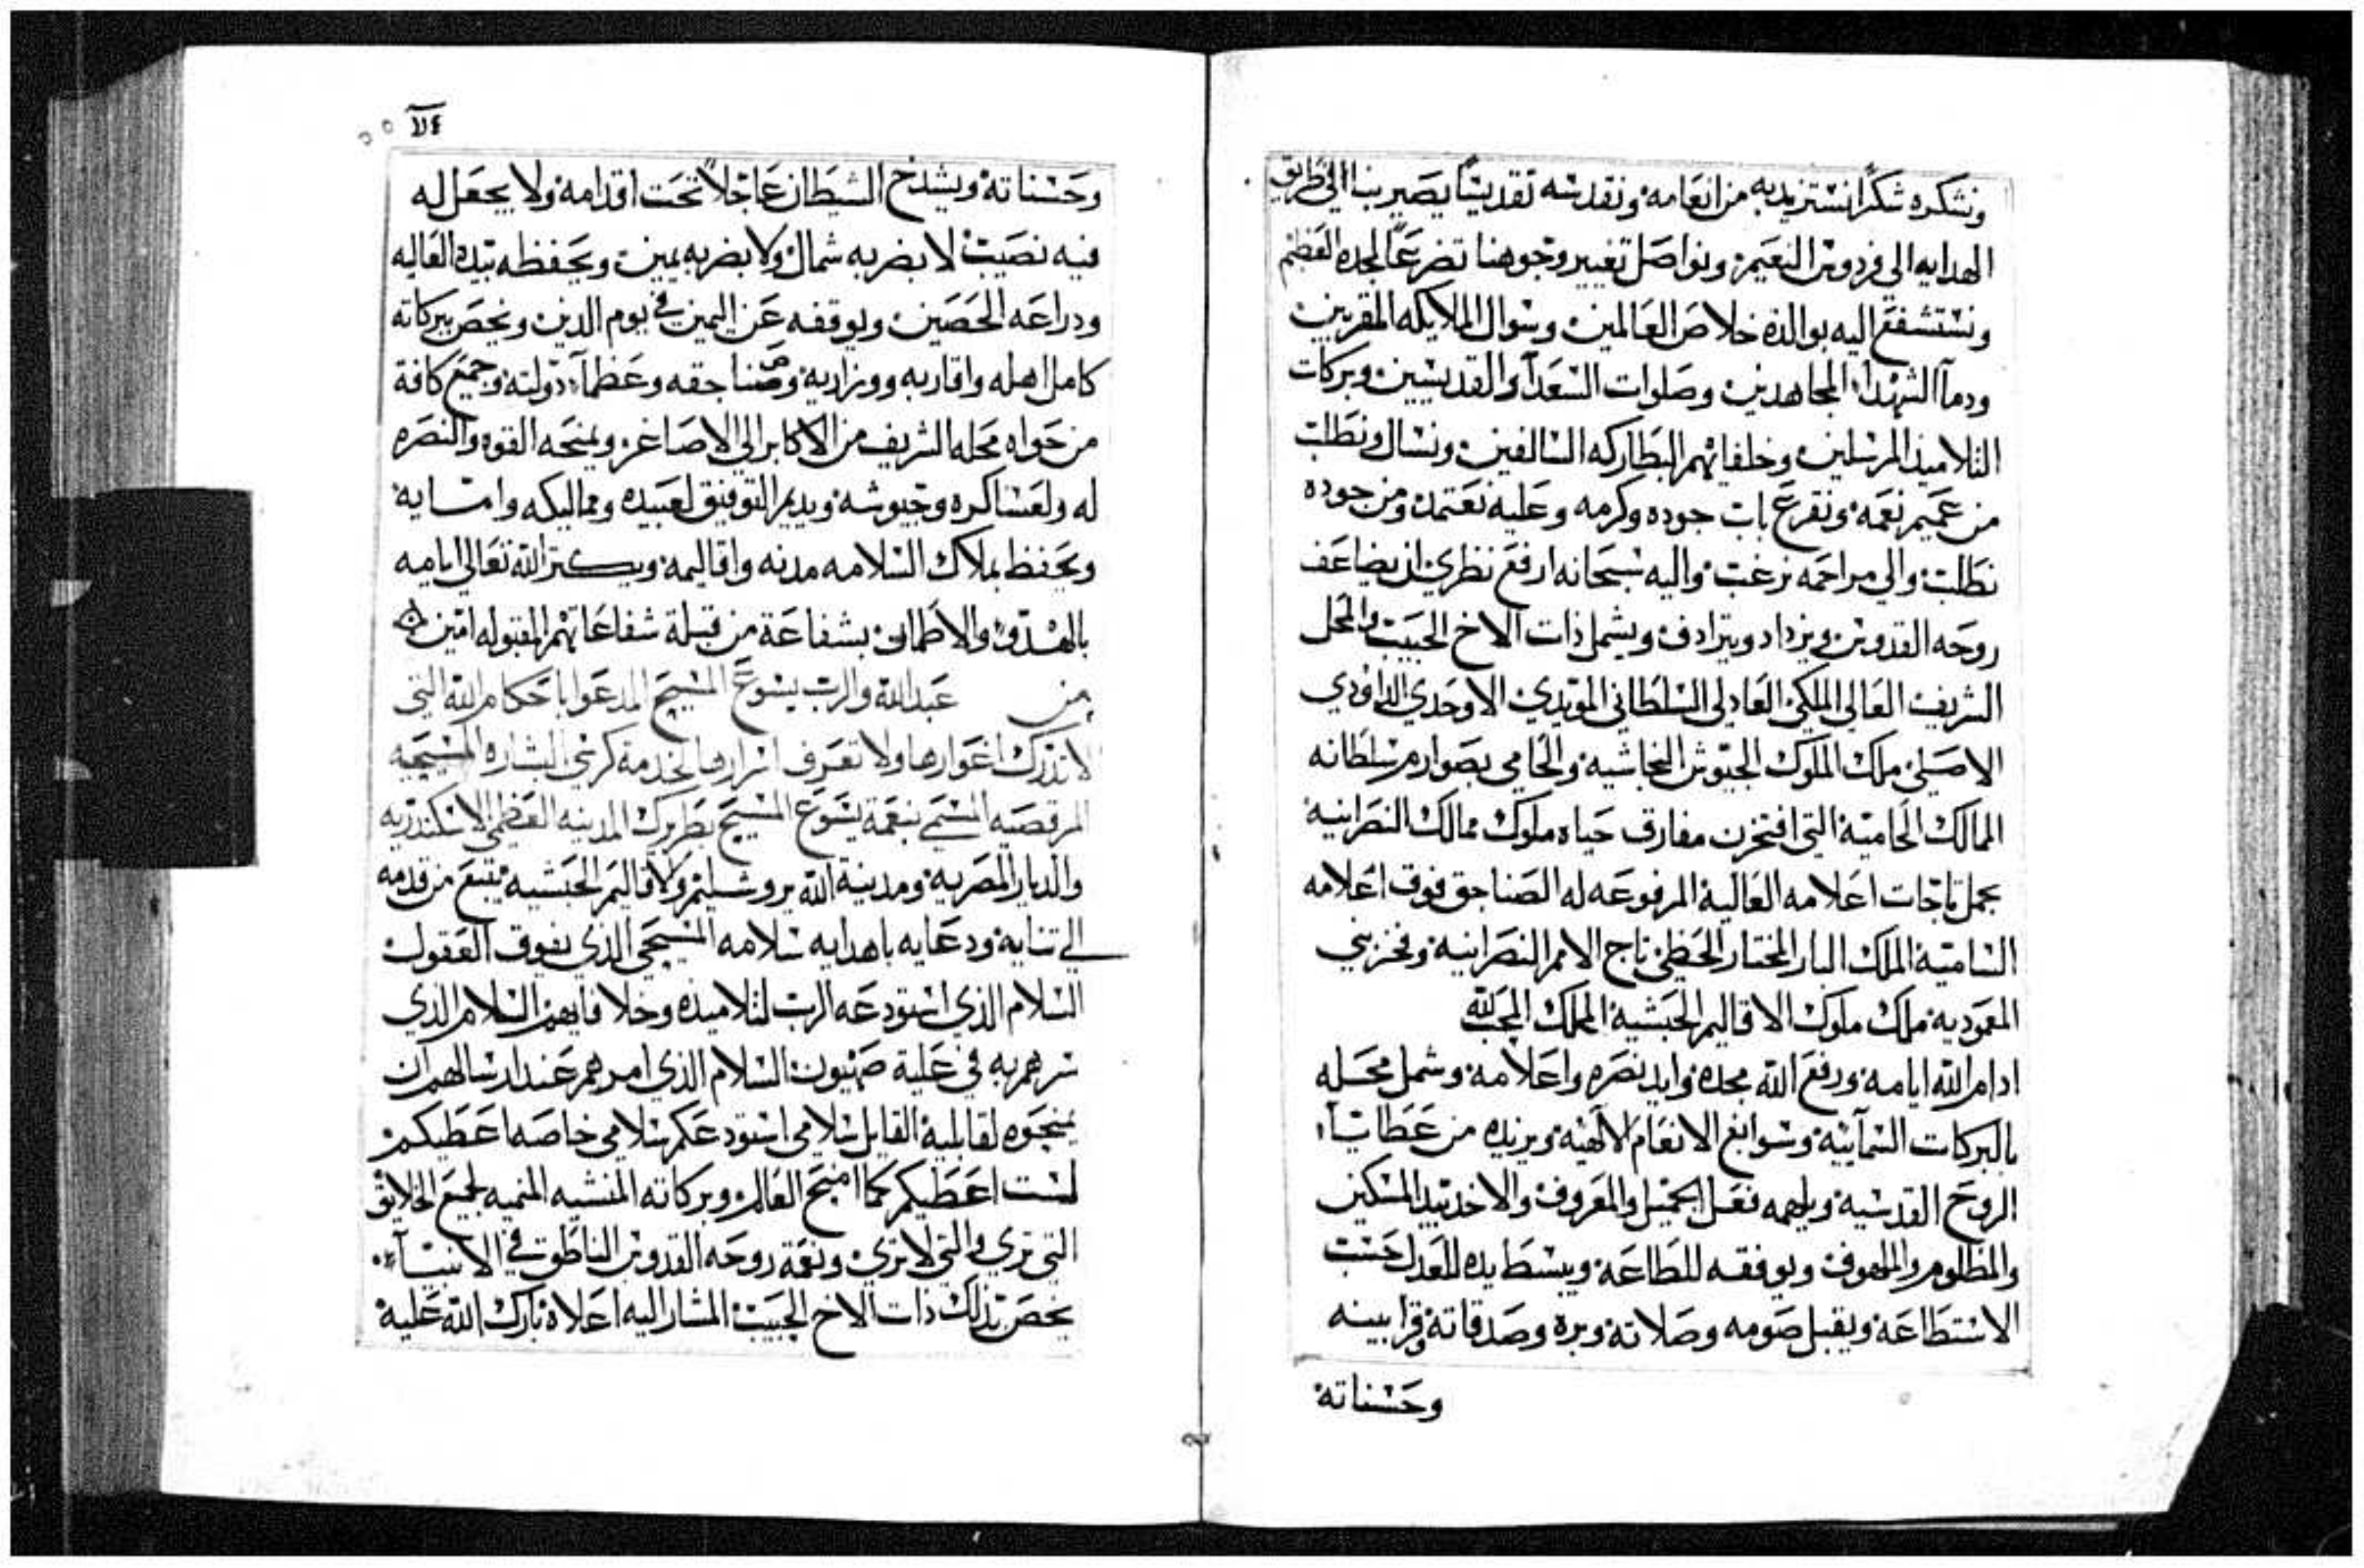 ونشكره شكرًا نستزيد به من انعامه ونقدسه تقديسًا يصير بنا الي طريق
الهدايه الي فردوس النعيم ونواصل تغيير وجوهنا تضرعًا لمجده العظيم
ونستشفع اليه بوالدة خلاص العالمين وسوال الملايكه المقربين
ودمآ الشهدآء المجاهدين وصلوات السعدآ والقديسين وبركات
التلاميذ المرسلين وخلفائهم البطاركه السالفين ونسال ونطلب
من عميم نعمه ونقرع باب جوده وكرمه وعليه نعتمد ومن جوده
نطلب والي مراحمه نرغب واليه سبحانه ارفع نظري ان يضاعف
روحه القدوس ويزداد ويترادف ويشمل ذات الاخ الحبيب والمحل
الشريف العالي الملكي العادلي السلطاني المويدي الاوحدي الداوودي
الاصلي ملك الملوك الجيوش النجاشيه والحامي بصوارم سلطانه
الممالك الحاميه التي افتخرن مفارق حياه ملوك ممالك النصرانيه
بحمل تاجات اعلامه العاليه المرفوعه له الصناجق فوق اعلامه
الساميه الملك البار المختار الحظي تاج الامم النصرانيه وفخر بني
المعموديه ملك ملوك الاقاليم الحبشيه الملك المحب لله
ادام الله ايامه ورفع الله مجده وايد نصره واعلامه وشمل محله
بالبركات السمآييه وسوابغ الانعام الالهيه ويزيده من عطايآء
الروح القدسيه ويلهمه فعل الجميل والمعروف والاخد بيد المسكين
والمظلوم والملهوف ويوفقه للطاعه ويبسط يده للعدل حسب
الاستطاعه ويقبل صومه وصلاته وبره وصدقاته وقرابينه
وحسناته
وحسناته ويشدخ الشيطان عاجلاً تحت اقدامه ولا يجعل له
فيه نصيب لا بضربه شمال ولا بضربه يمين ويحفظه بيده العاليه
ودراعه الحصين ويوقفه عن اليمين في يوم الدين ويخص ببركاته
كامل اهله واقاربه ووزرايه وصناجقه وعظمآء دولته وجميع كافة
من حواه محله الشريف من الاكابر الي الاصاغر ويمنحه القوه والنصره
له ولعساكره وجيوشه ويديم التوفيق لعبيده ومماليكه وامتايه
ويحفظ بملاك السلامه مدنه واقاليمه ويكتر الله تعالي ايامه
بالهدو والاطمان بشفاعة من قبلة شفاعاتهم المقبوله امين
من عبد الله والرب يسوع المسيح المدعوا باحكام الله التي
لا تدرك اغوارها ولا تعرف اسرارها لخدمة كرسي البشاره المسيحيه
المرقصيه المسمي بنعمة يسوع المسيح بطريرك المدينه العظمي الاسكندريه
والديار المصريه ومدينة الله يروشليم والاقاليم الحبشيه يتبع من قدمه
الي تنايه ودعايه باهدايه سلامه المسيحي الذي يفوق العقول
السلام الذي استودعه الرب لتلاميده وخلافايهم السلام الذي
سرهم به في علية صهيون السلام الذي امرهم عند ارسالهم ان
يمنحوه لقابليه القايل سلامي استودعكم سلامي خاصه اعطيكم
لست اعطيكم كما امنح العالم وبركاته المنشيه المنميه لجميع الخلايق
التي تري والتي لا تري ونعمة روحه القدوس الناطق في الانبيآء
يخص بذلك ذات الاخ الحبيب المشار اليه اعلاه بارك الله عليه